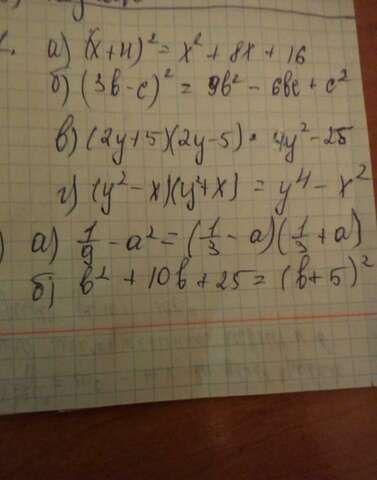 а) (x+4)² = x² + 8x + 16
б) (3b-c)² = 9b² - 6bc + c²
в) (2y+5)(2y-5) = 4y² - 25
г) (y²-x)(y²+x) = y⁴ - x²
) а) 1/9 - a² = (1/3 - a)(1/3 + a)
б) b² + 10b + 25 = (b+5)²